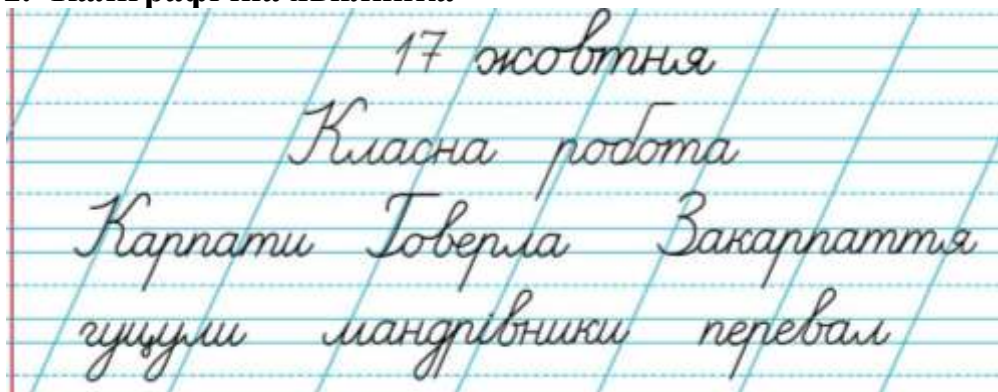 17 жовтня
Класна робота
Карпати Говерла Закарпаття
гуцули мандрівники перевал